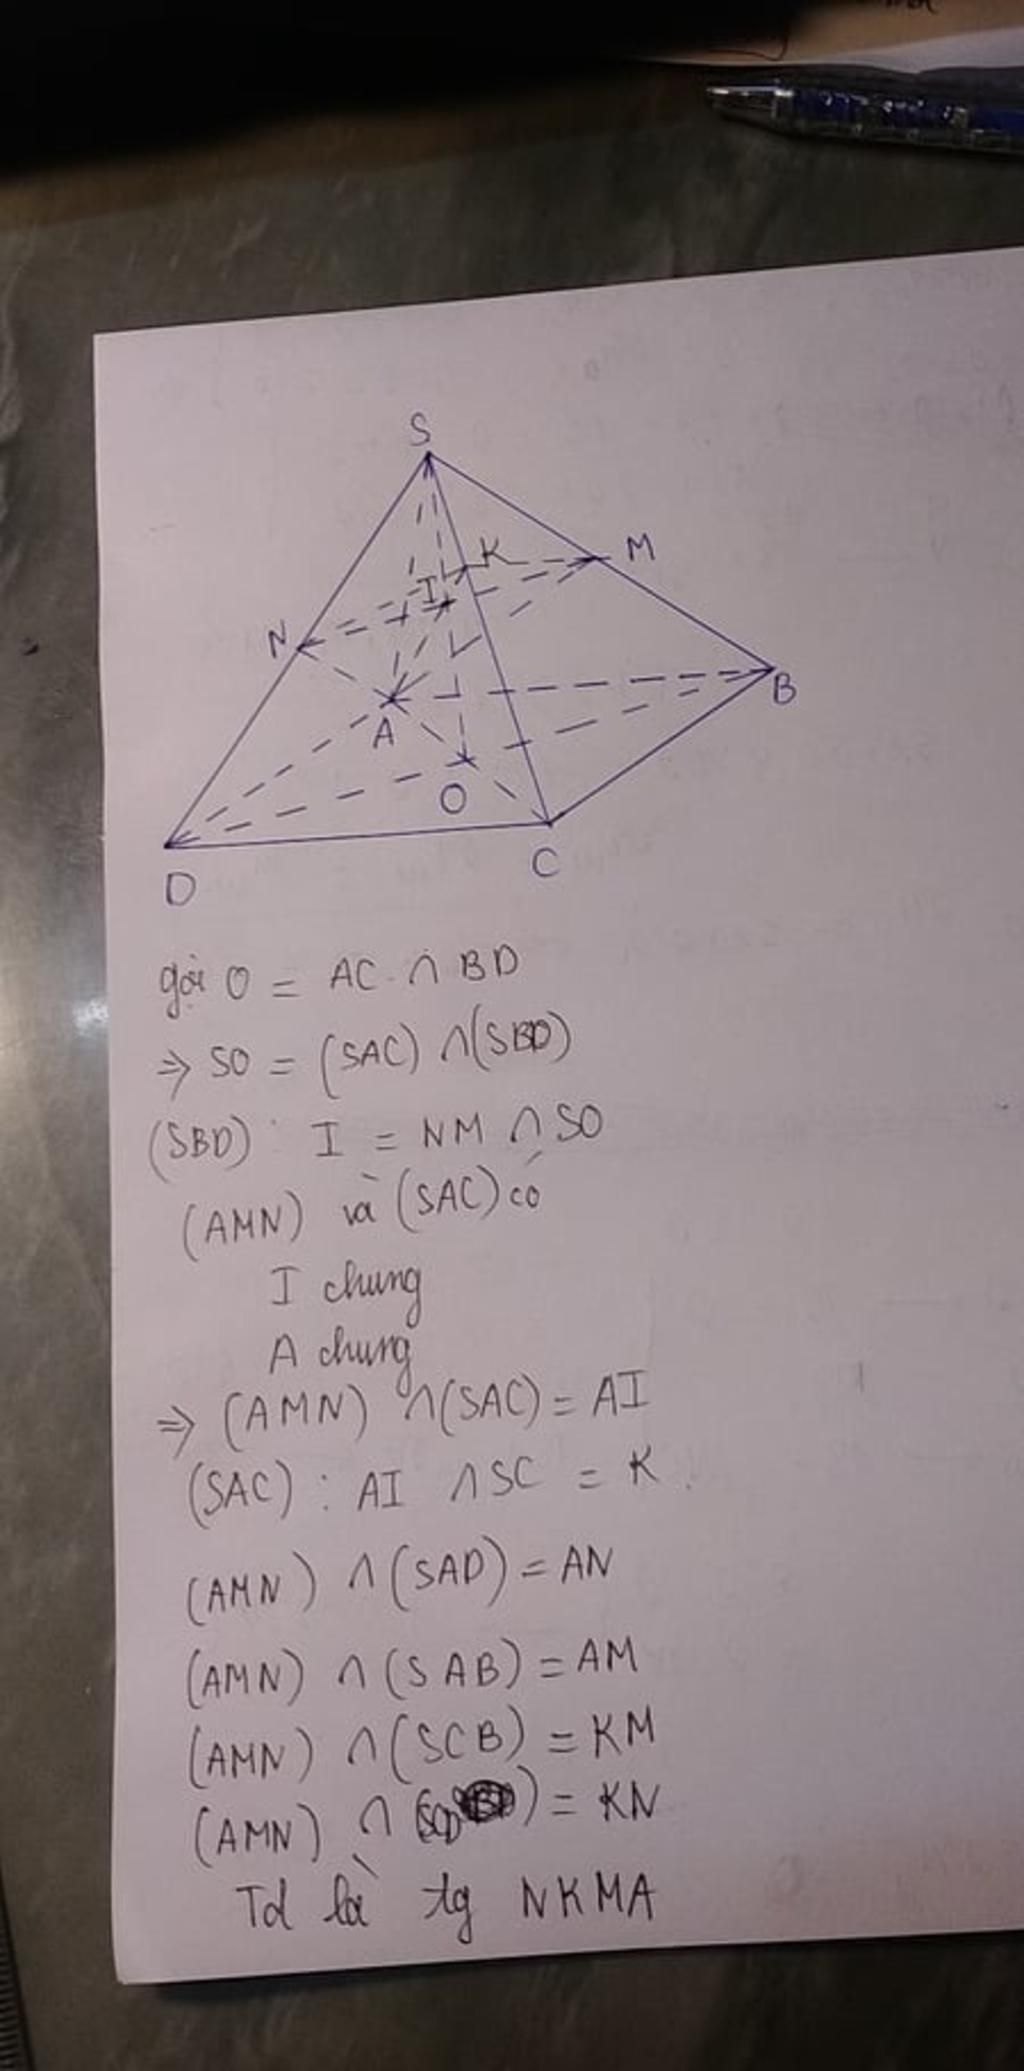 S
K
M
I
N
A
B
O
D
C
gọi O = AC ∩ BD
⇒ SO = (SAC) ∩ (SBD)
(SBD) : I = NM ∩ SO
(AMN) và (SAC) có
I chung
A chung
⇒ (AMN) ∩ (SAC) = AI
(SAC) : AI ∩ SC = K
(AMN) ∩ (SAD) = AN
(AMN) ∩ (SAB) = AM
(AMN) ∩ (SCB) = KM
(AMN) ∩ (SCD) = KN
Td là tg NKMA